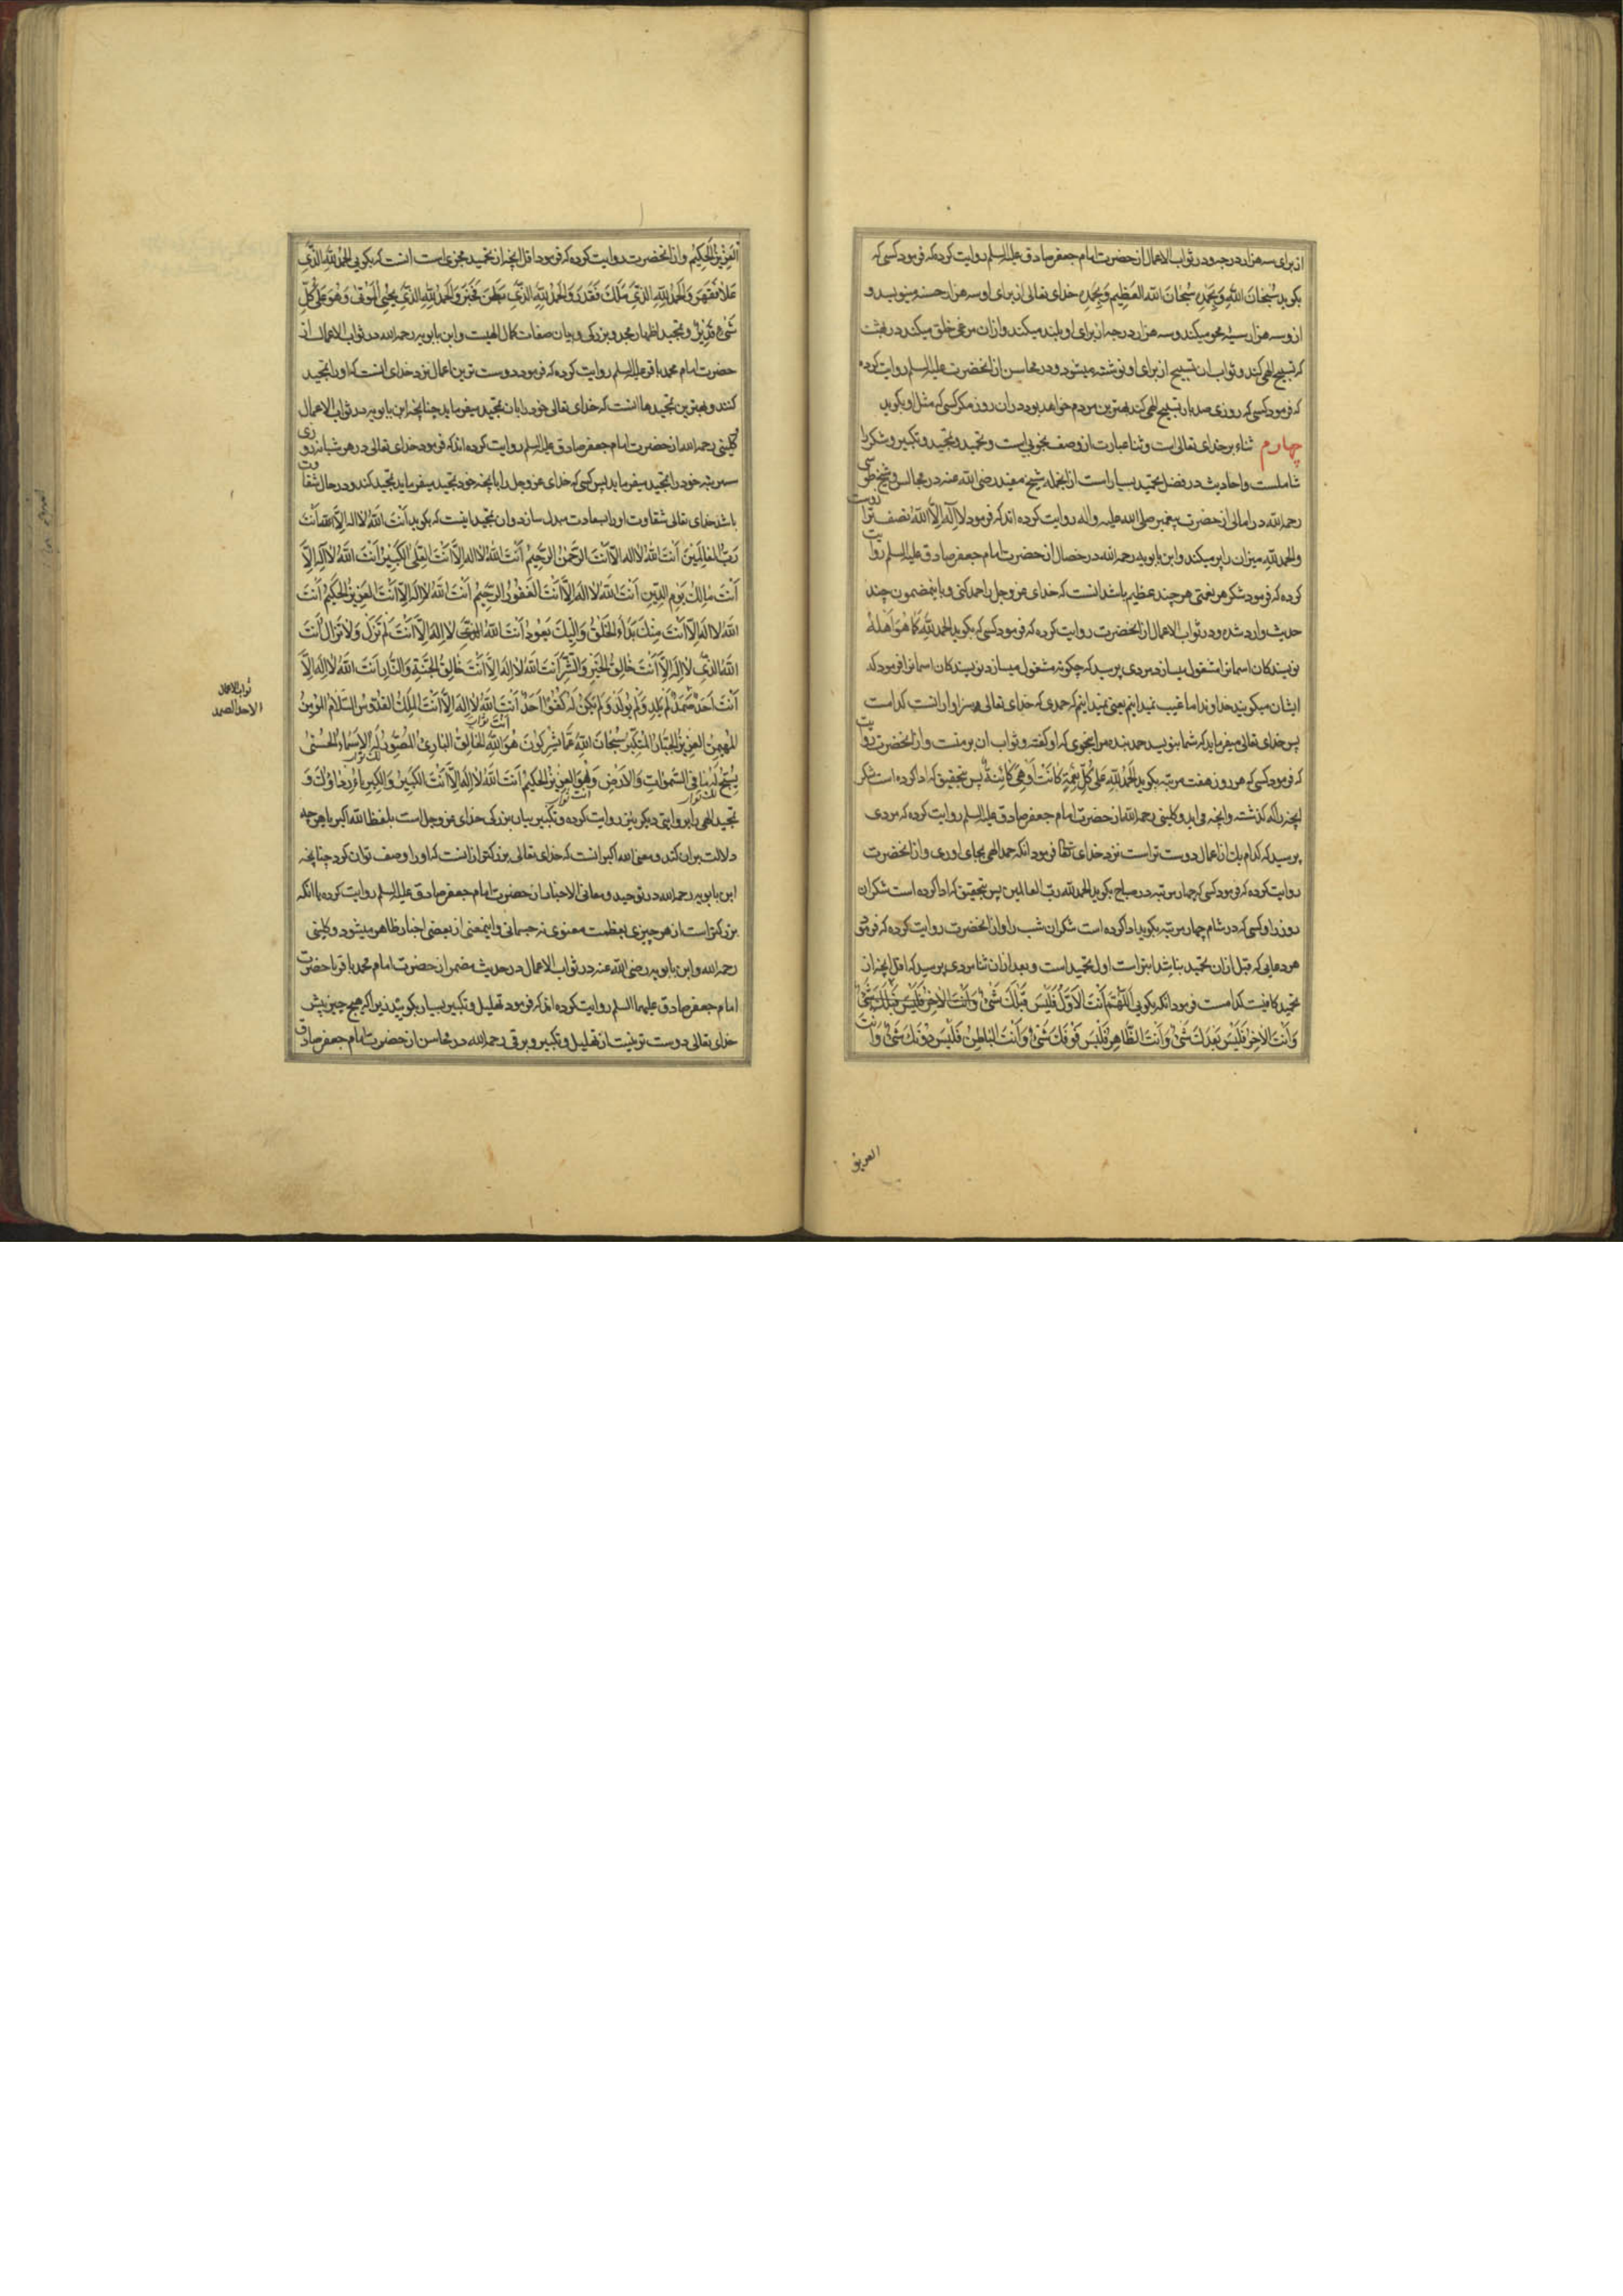 از برای سه هزار درجه و در ثواب الاعمال از حضرت امام جعفر صادق علیه السلم روایت کرده که فرمود کسی که
بکوید سُبْحَانَ اللَّهِ وَبِحَمْدِهِ سُبْحَانَ اللهِ العَظِیمِ وَبِحَمْدِهِ خدای تعالی از برای او سه هزار حسنه مینویسد و
از و سه هزار سیئه محو میکند و سه هزار درجه از برای او بلند میکند و از ان مرغی خلق میکند در بهشت
که تسبیح الهی کند و ثواب ان تسبیح از برای او نوشته میشود و در محاسن از انحضرت علیه السلم روایت کرده
که فرمود کسی که روزی صد بار تسبیح الهی کند بهترین مردم خواهد بود در ان روز مکر کسی که مثل او بکوید
چهارم ثناء بر خدای تعالی است و ثنا عبارت از وصف بخوبی است و تحمید و تمجید و تکبیر و شکر را
شاملست و احادیث در فضل تحمید بسیار است از انجمله شیخ مفید رضی الله عنه در مجالس و شیخ طوسی
رحمه الله در امالی از حضرت پیغمبر صلی الله علیه و اله روایت کرده اند که فرمود لا اِلَهَ اِلاَّ اللهُ نصف ترازوست
والحمد للهِ میزان را پر میکند و ابن بابویه رحمه الله در خصال از حضرت امام جعفر صادق علیه السلم روایت
کرده که فرمود شکر هر نعمتی هر چند عظیم باشد انست که خدای عز و جل را حمد کنی و باینمضمون چند
حدیث وارد شده و در ثواب الاعمال از انحضرت روایت کرده که فرمود کسی که بکوید الحمد للهِ کَمَا هُوَ اَهْلُهُ
نویسندکان اسمانرا مشغول میسازد مردی پرسید که چکونه مشغول میسازد نویسندکان اسمانرا فرمود که
ایشان میکویند خداوندا ما غیب نمیدانیم یعنی نمیدانیم که حمدی که خدای تعالی سزاوار انست کدامست
پس خدای تعالی میفرماید که شما بنویسید حمد بنده مرا بنحوی که او کفته و ثواب ان بر منست و از انحضرت روایت
که فرمود کسی که هر روز هفت مرتبه بکوید اَلْحَمْدُ لِلَّهِ عَلَی کُلِّ نِعْمَةٍ کَانَتْ اَوْ هِیَ کَائِنَةٌ پس بتحقیق که ادا کرده است شکر
انچه را که کذشته و انچه می اید و کلینی رحمه الله از حضرت امام جعفر صادق علیه السلم روایت کرده که مردی
پرسید که کدام یک از اعمال دوست تر است نزد خدای تعالی فرمود انکه حمد الهی بجای اوری و از انحضرت
روایت کرده که فرمود کسی که چهار مرتبه در صباح بکوید الحمد لله ربّ العالمین پس بتحقیق که ادا کرده است شکر ان
روز را و کسی که در شام چهار مرتبه بکوید ادا کرده است شکر ان شب را و از انحضرت روایت کرده که فرمود
هر دعایی که قبل از ان تحمید نباشد ابتر است اول تحمید است و بعد از ان ثنا مردی پرسید که اقل انچه از
تحمید کافیست کدامست فرمود انکه بکویی اَللَّهُمَّ اَنْتَ الاَوَّلُ فَلَیْسَ قَبْلَکَ شَیْءٌ وَاَنْتَ الاخِرُ فَلَیْسَ قَبْلَکَ شَیْءٌ
وَاَنْتَ الاخِرُ فَلَیْسَ بَعْدَکَ شَیْءٌ وَاَنْتَ الظَّاهِرُ فَلَیْسَ فَوْقَکَ شَیْءٌ وَاَنْتَ البَاطِنُ فَلَیْسَ دُوْنَکَ شَیْءٌ وَاَنْتَ
العزیز
العَزِیْزُ الحَکِیْمُ و از انحضرت روایت کرده که فرمود اقل انچه از تحمید مجزی است انست که بکویی الحَمْدُ للهِ الَّذِی
عَلاَ فَقَهَرَ وَالْحَمْدُ لِلَّهِ الَّذِی مَلَکَ فَقَدَرَ وَالْحَمْدُ لِلَّهِ الَّذِی بَطَنَ فَخَبَرَ وَالْحَمْدُ لِلَّهِ الَّذِی یُحْیِی الْمَوْتَی وَهُوَ عَلَی کُلِّ
شَیْءٍ قَدِیْرٌ و تمجید اظهار مجد و بزرکی و بیان صفات کمال الهیست و ابن بابویه رحمه الله در ثواب الاعمال از
حضرت امام محمد باقر علیه السلم روایت کرده که فرمود دوست ترین اعمال نزد خدای انست که او را تمجید
کنند و بهترین تمجیدها انست که خدای تعالی خود را بان تمجید میفرماید چنانچه ابن بابویه در ثواب الاعمال
و کلینی رحمه الله از حضرت امام جعفر صادق علیه السلم روایت کرده اند که فرمود خدای تعالی در هر شبانه روزی
سه مرتبه خود را تمجید میفرماید پس کسی که خدای عز و جل را بانچه خود تمجید میفرماید تمجید کند و در حال شقاوت
باشد خدای تعالی شقاوت او را بسعادت مبدل سازد و ان تمجید اینست که بکوید اَنْتَ اللهُ لا اله اِلاَّ اَنْتَ
رَبُّ العَالَمِیْنَ اَنْتَ اللهُ لا اله اِلاَّ اَنْتَ الرَّحْمنُ الرَّحِیْمُ اَنْتَ اللهُ لا اله اِلاَّ اَنْتَ العَلِیُّ الکَبِیْرُ اَنْتَ اللهُ لا اِلَهَ اِلاَّ
اَنْتَ مَالِکُ یَوْمِ الدِّیْنِ اَنْتَ اللهُ لا اِلَهَ اِلاَّ اَنْتَ الغَفُوْرُ الرَّحِیْمُ اَنْتَ اللهُ لا اِلَهَ اِلاَّ اَنْتَ العَزِیْزُ الحَکِیْمُ اَنْتَ
اللهُ لا اِلَهَ اِلاَّ اَنْتَ مِنْکَ بَدَاَ الْخَلْقُ وَاِلَیْکَ یَعُوْدُ اَنْتَ اللهُ الَّذِی لا اِلَهَ اِلاَّ اَنْتَ لَمْ تَزَلْ وَلاَ تَزَالُ اَنْتَ
اللهُ الَّذِی لا اِلَهَ اِلاَّ اَنْتَ خَالِقُ الخَیْرِ وَالشَّرِّ اَنْتَ اللهُ لا اِلَهَ اِلاَّ اَنْتَ خَالِقُ الجَنَّةِ وَالنَّارِ اَنْتَ اللهُ لا اِلَهَ اِلاَّ
اَنْتَ اَحَدٌ صَمَدٌ لَمْ یَلِدْ وَلَمْ یُوْلَدْ وَلَمْ یَکُنْ لَهُ کُفُوًا اَحَدٌ اَنْتَ اللهُ لا اِلَهَ اِلاَّ اَنْتَ المَلِکُ القُدُّوْسُ السَّلاَمُ المُؤْمِنُ
ثواب الاعمال
الاحد الصمد
المُهَیْمِنُ العَزِیْزُ الجَبَّارُ المُتَکَبِّرُ سُبْحَانَ اللهِ عَمَّا یُشْرِکُوْنَ هُوَ اللهُ الخَالِقُ البَارِئُ المُصَوِّرُ لَهُ الاَسْمَاءُ الحُسْنَی
یُسَبِّحُ لَهُ مَا فِی السَّمَوَاتِ وَالاَرْضِ وَهُوَ العَزِیْزُ الحَکِیْمُ اَنْتَ اللهُ لا اِلَهَ اِلاَّ اَنْتَ الکَبِیْرُ وَالکِبْرِیَاءُ رِدَاؤُکَ وَ
تمجید الهی را بروایتی دیکر نیز روایت کرده و تکبیر بیان بزرکی خدای عز و جل است بلفظ الله اکبر یا هر چه
دلالت بر ان کند و معنی الله اکبر انست که خدای تعالی بزرکتر از انست که او را وصف توان کرد چنانچه
ابن بابویه رحمه الله در توحید و معانی الاخبار از حضرت امام جعفر صادق علیه السلم روایت کرده یا انکه
بزرکتر است از هر چیزی بعظمت معنوی نه جسمانی و اینمعنی از بعضی اخبار ظاهر میشود و کلینی
رحمه الله و ابن بابویه رضی الله عنه در ثواب الاعمال در حدیث از حضرت امام محمد باقر یا حضرت
امام جعفر صادق علیهما السلم روایت کرده اند که فرمود تهلیل و تکبیر بسیار بکویید زیرا که هیچ چیز پیش
خدای تعالی دوست تر نیست از تهلیل و تکبیر و برقی رحمه الله در محاسن از حضرت امام جعفر صادق